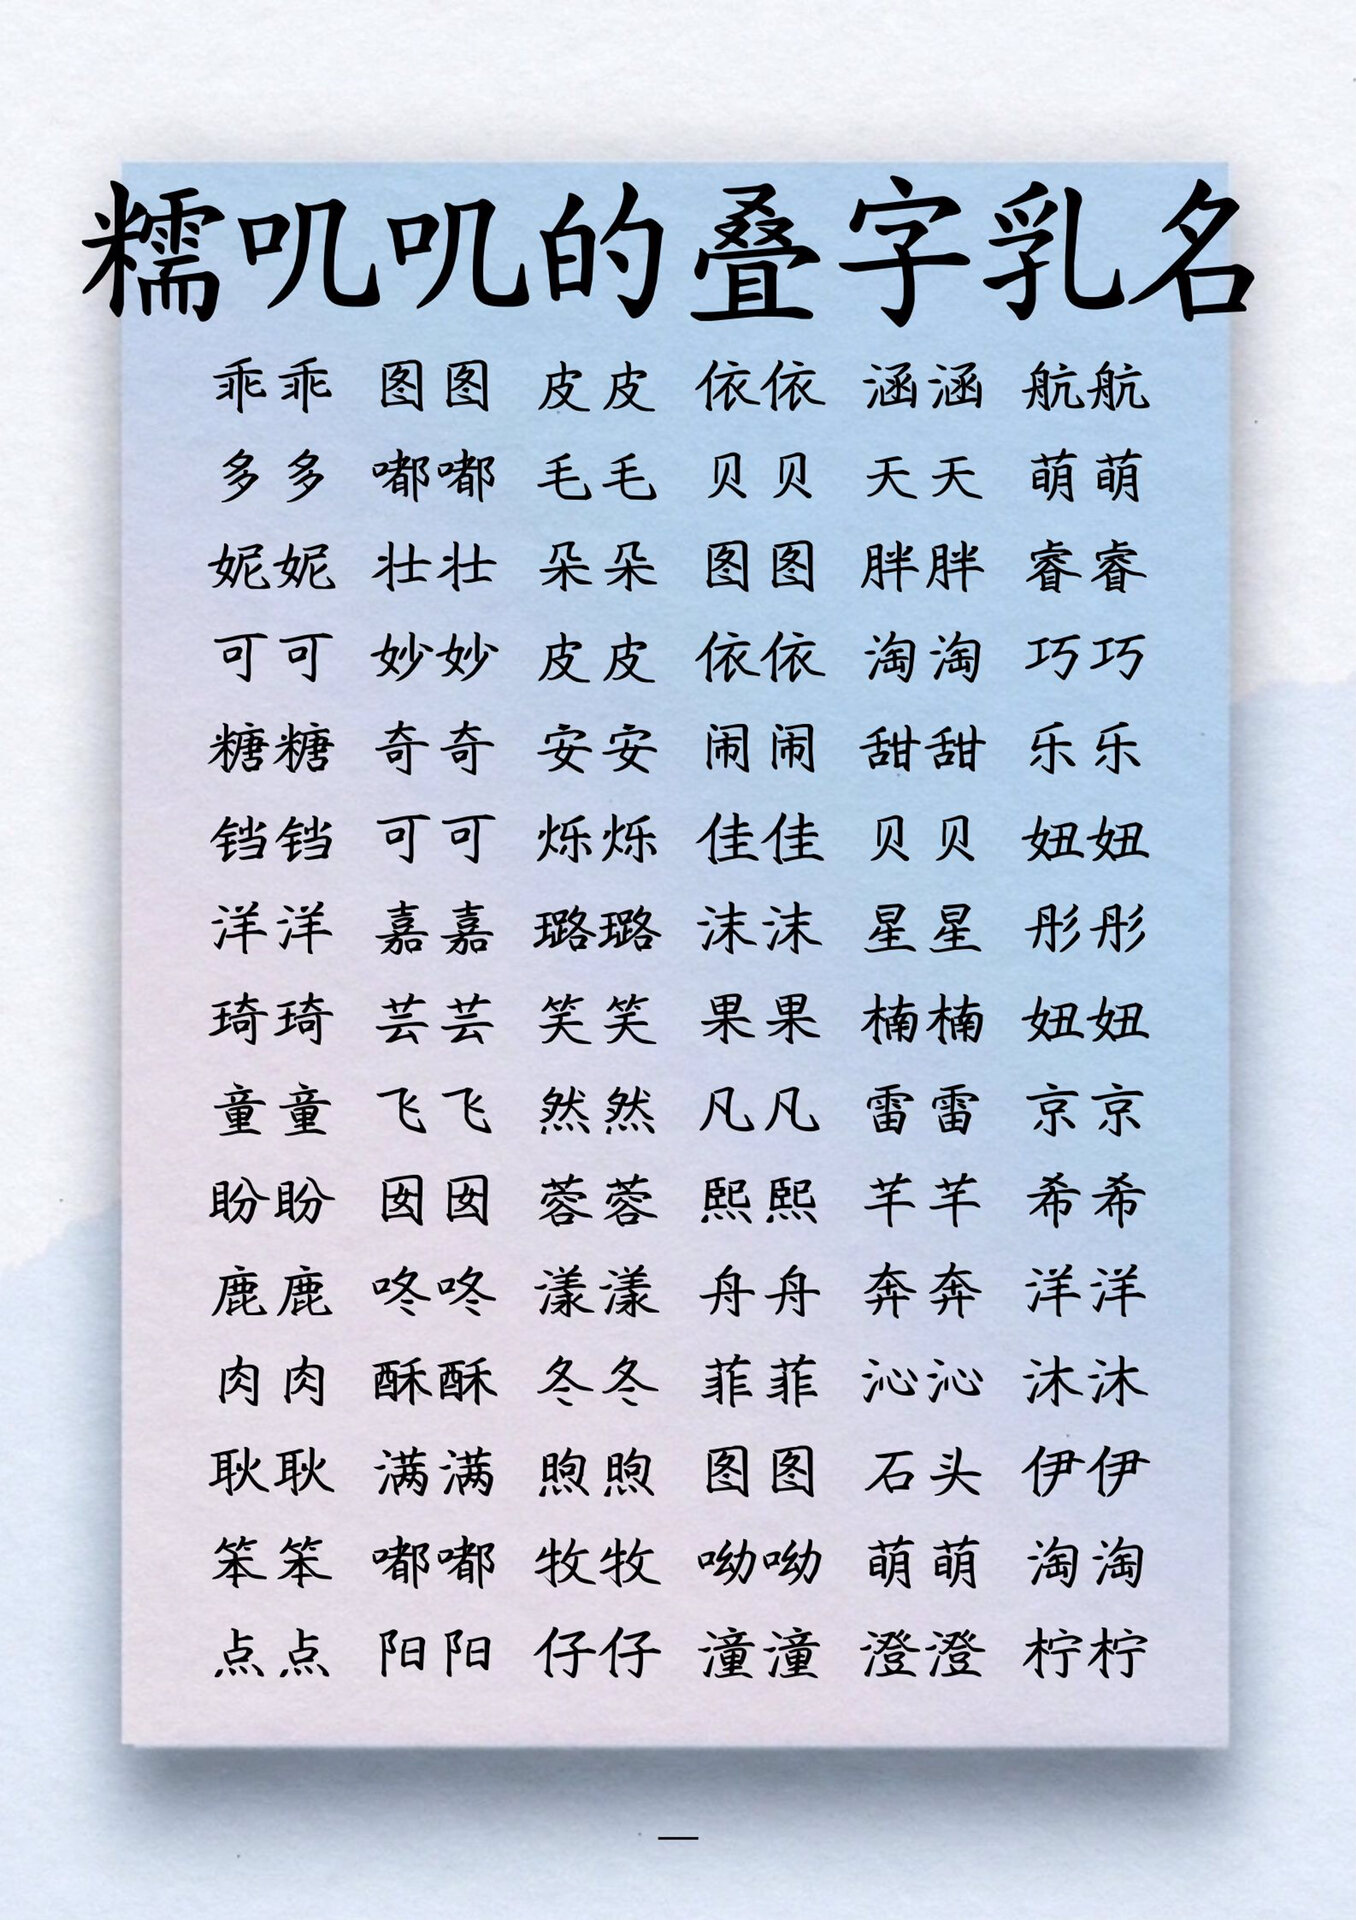 糯叽叽的叠字乳名
乖乖 图图 皮皮 依依 涵涵 航航
多多 嘟嘟 毛毛 贝贝 天天 萌萌
妮妮 壮壮 朵朵 图图 胖胖 睿睿
可可 妙妙 皮皮 依依 淘淘 巧巧
糖糖 奇奇 安安 闹闹 甜甜 乐乐
铛铛 可可 烁烁 佳佳 贝贝 妞妞
洋洋 嘉嘉 璐璐 沫沫 星星 彤彤
琦琦 芸芸 笑笑 果果 楠楠 妞妞
童童 飞飞 然然 凡凡 雷雷 京京
盼盼 囡囡 蓉蓉 熙熙 芊芊 希希
鹿鹿 咚咚 漾漾 舟舟 奔奔 洋洋
肉肉 酥酥 冬冬 菲菲 沁沁 沐沐
耿耿 满满 煦煦 图图 石头 伊伊
笨笨 嘟嘟 牧牧 呦呦 萌萌 淘淘
点点 阳阳 仔仔 潼潼 澄澄 柠柠
一